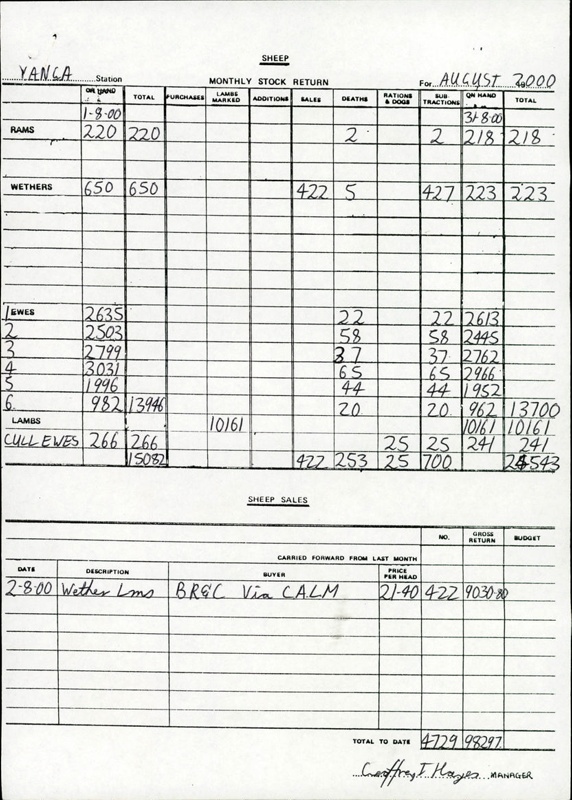 SHEEP
YANGA Station MONTHLY STOCK RETURN For AUGUST 2000
ON HAND TOTAL PURCHASES LAMBS MARKED ADDITIONS SALES DEATHS RATIONS & DOGS SUB. TRACTIONS ON HAND TOTAL
1-8-00 31-8-00
RAMS 220 220 2 2 218 218
WETHERS 650 650 422 5 427 223 223
1 EWES 2635 22 22 2613
2 2503 58 58 2445
3 2799 37 37 2762
4 3031 65 65 2966
5 1996 44 44 1952
6 982 13946 20 20 962 13700
LAMBS 10161 10161 10161
CULL EWES 266 266 25 25 241 241
15082 422 253 25 700 24543
SHEEP SALES
NO. GROSS RETURN BUDGET
CARRIED FORWARD FROM LAST MONTH
DATE DESCRIPTION BUYER PRICE PER HEAD
2-8-00 Wether Lms BR&C Via C.A.L.M 21-40 422 9030-80
TOTAL TO DATE 4729 98297
Geoffrey T Hayes MANAGER